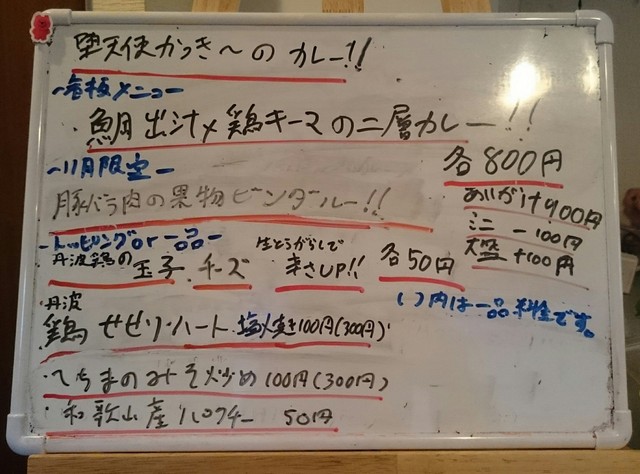 堕天使かっき〜のカレー!!
〜看板メニュー
・鯛出汁×鶏キーマの二層カレー!!
各800円
〜11月限定〜
豚バラ肉の果物ビンダルー!!
あいがけ900円
ミニ −100円
大盛 +100円
〜トッピングor一品〜
丹波鶏の玉子、チーズ
生とうがらしで辛さUP!!
各50円
( )内は一品料金です。
・丹波鶏 せせり・ハート 塩火焼き100円(300円)
・へちまのみそ炒め 100円(300円)
・和歌山産パクチー 50円